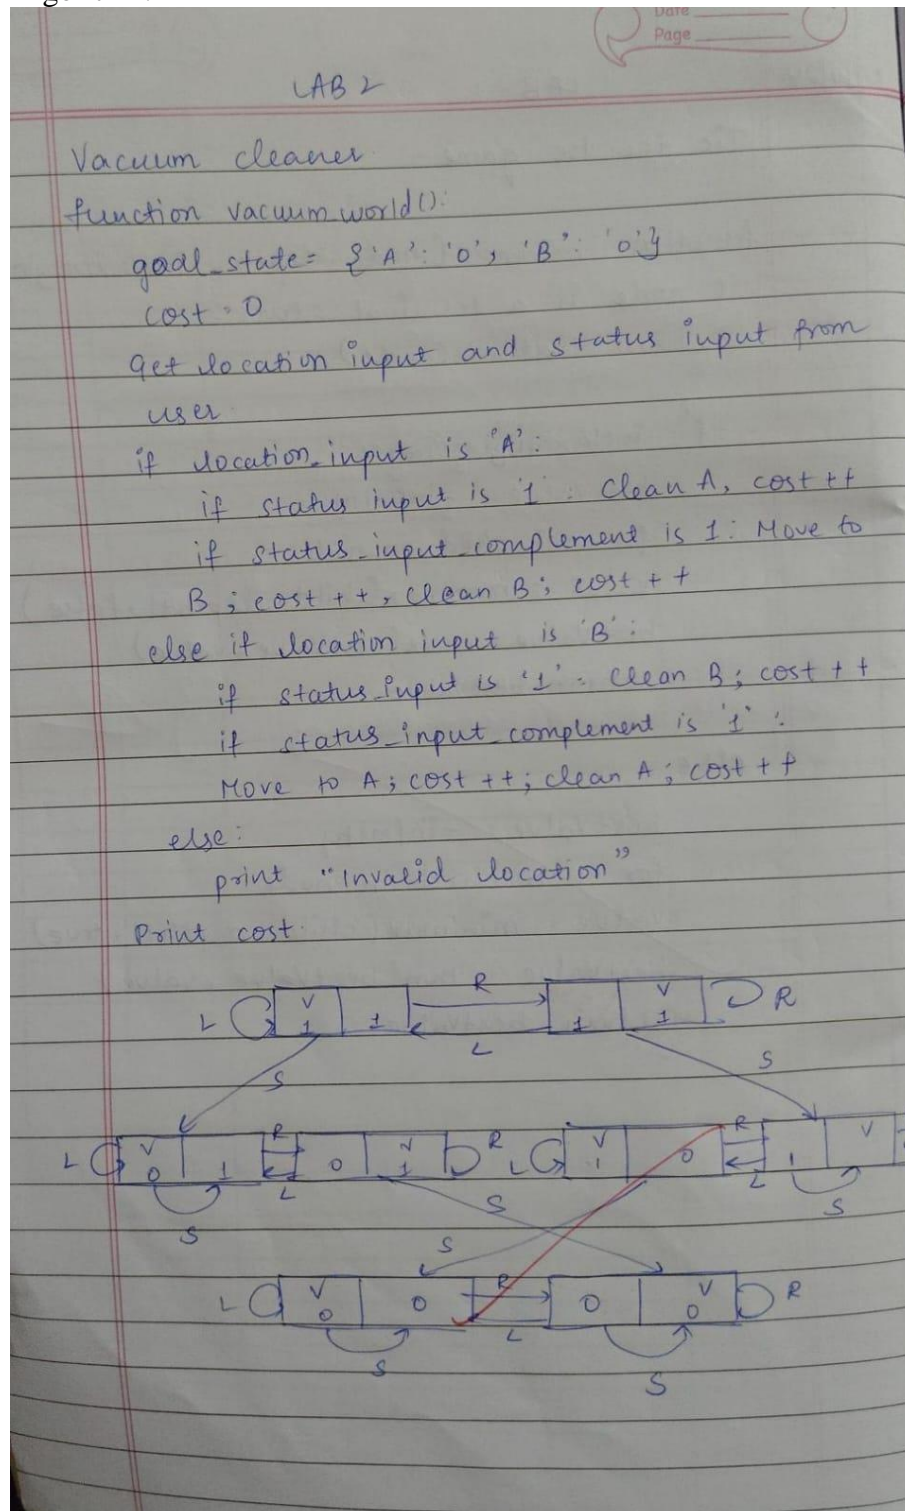 Date
Page
LAB 2
Vacuum cleaner
function vacuum_world():
goal_state= {'A': '0', 'B': '0'}
cost = 0
Get location input and status input from
user
if location_input is 'A':
if status input is '1': Clean A, cost ++
if status_input_complement is 1: Move to
B; cost ++, clean B; cost ++
else if location input is 'B':
if status_input is '1': Clean B; cost ++
if status_input_complement is '1':
Move to A; cost ++; clean A; cost ++
else:
print "Invalid location"
Print cost.
R
L V V R
1 1 1 1
L
S S
L V R V R L V R V
0 1 0 1 1 0 1
L L
S S S
S
L V R V R
0 0 0 0
L
S S